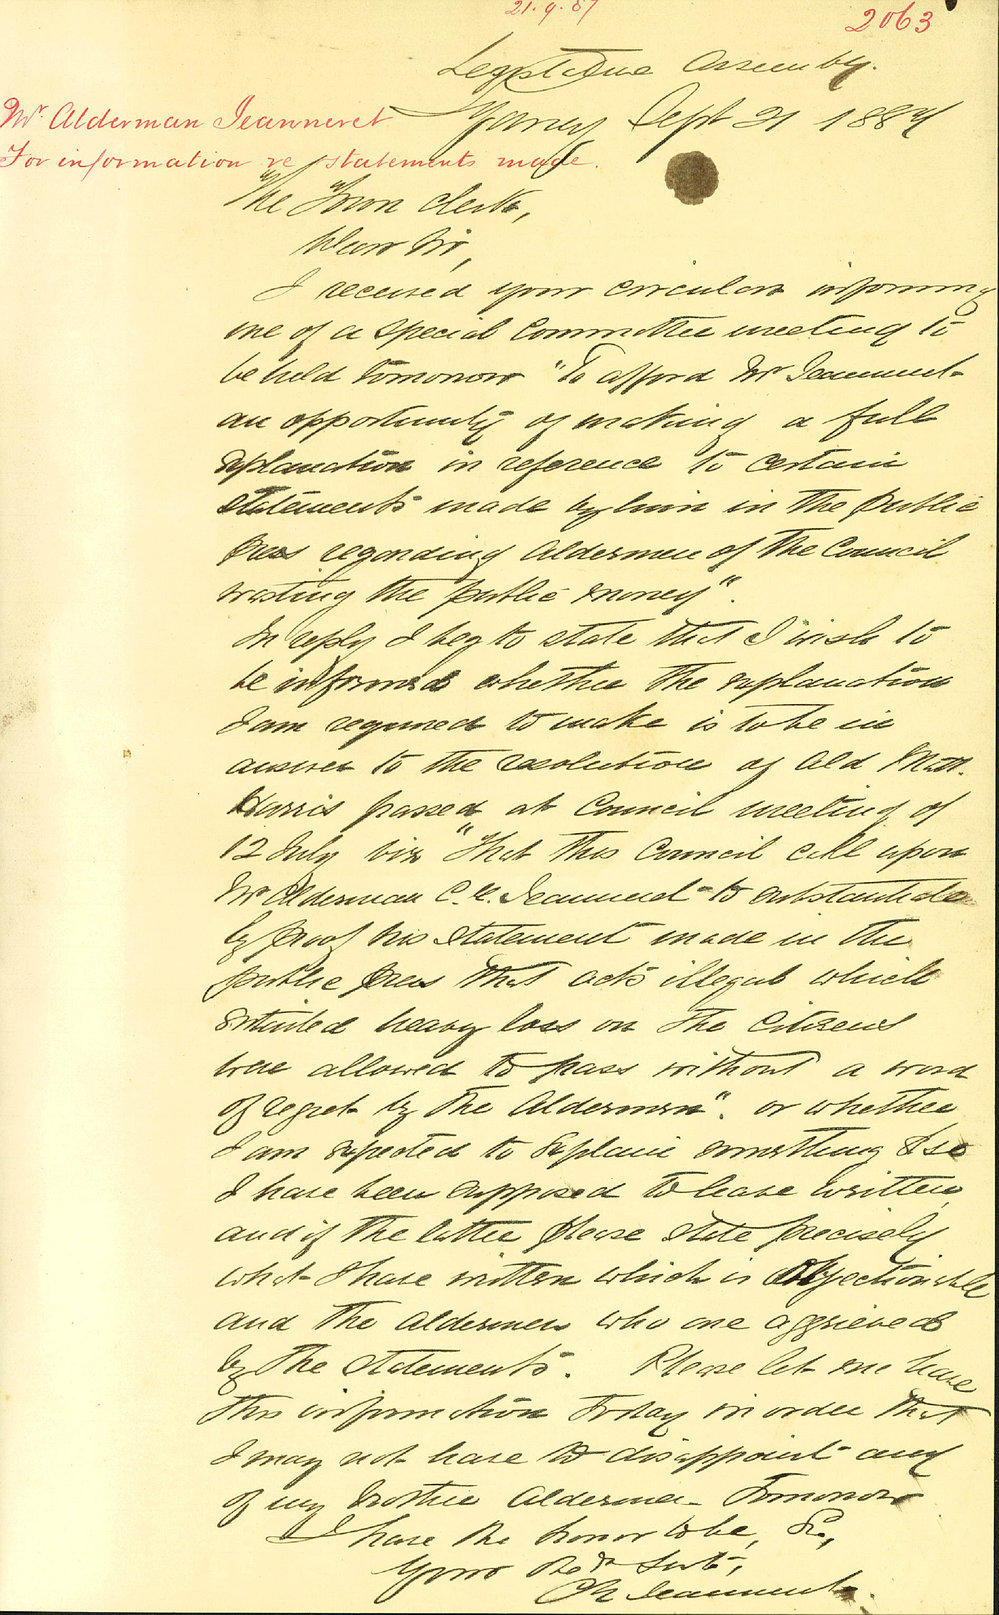 21.9.87
2063
Legislative Assembly.
Sydney Sept 21 1887
Mr. Alderman Jeanneret
For information re statements made.
The Town Clerk,
Dear Sir,
I received your circular informing
me of a special Committee meeting to
be held tomorrow "To afford Mr Jeanneret
an opportunity of making a full
explanation in reference to certain
statements made by him in the public
press regarding Aldermen of the Council
wasting the public money".
In reply I beg to state that I wish to
be informed whether the explanation
I am required to make is to be in
answer to the resolution of Ald Matt.
Harris passed at Council meeting of
12 July viz "That this Council call upon
Mr Alderman C. E. Jeanneret to substantiate
by proof his statement made in the
public press that acts illegal which
entailed heavy loss on the Citizens
were allowed to pass without a word
of regret by the Aldermen". or whether
I am expected to explain something else
I have been supposed to have written,
and if the latter please state precisely
what I have written which is objectionable
and the Aldermen who are aggrieved
by the statements. Please let me have
this information today in order that
I may not have to disappoint any
of my brother Aldermen tomorrow
I have the honor to be, Sir,
Your Obdt Servt,
CE Jeanneret.